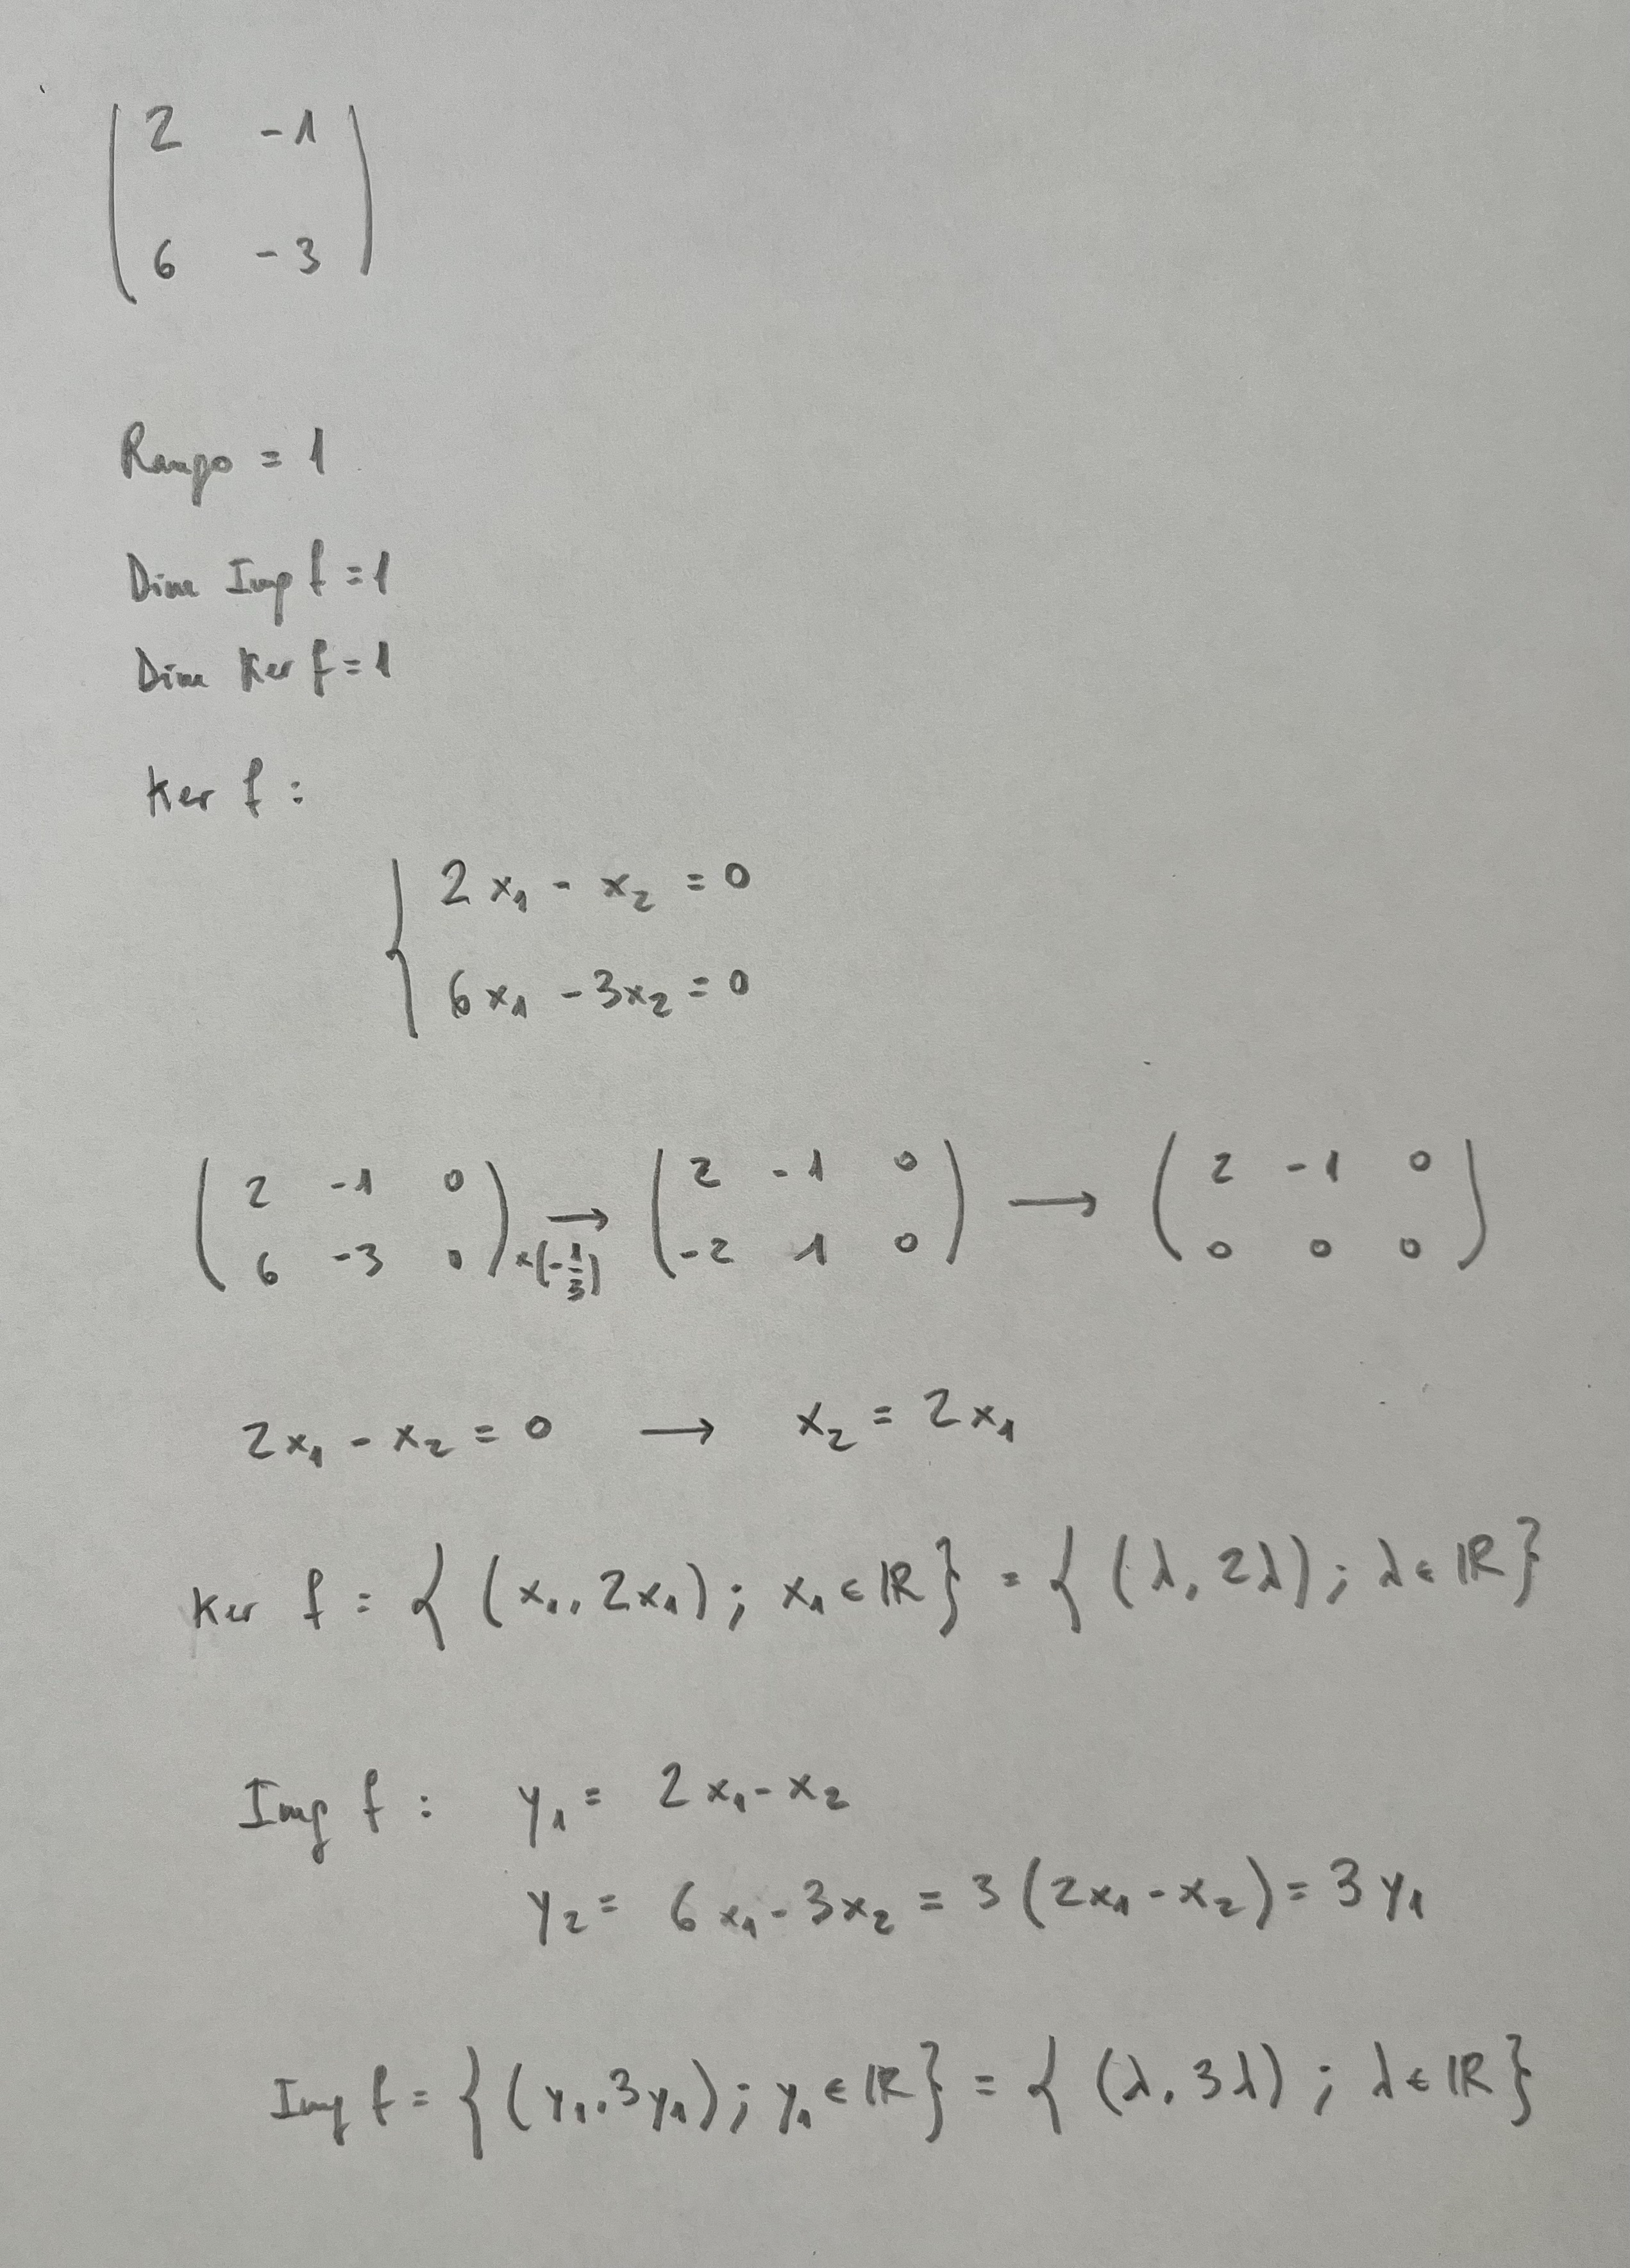 ( 2 -1 )
( 6 -3 )
Rango = 1
Dim Img f = 1
Dim Ker f = 1
Ker f :
{ 2x₁ - x₂ = 0
6x₁ - 3x₂ = 0
( 2 -1 0 ) → ( 2 -1 0 ) → ( 2 -1 0 )
( 6 -3 0 ) ×(-1/3) ( -2 1 0 ) ( 0 0 0 )
2x₁ - x₂ = 0 → x₂ = 2x₁
Ker f = { (x₁, 2x₁) ; x₁ ∈ ℝ } = { (λ, 2λ) ; λ ∈ ℝ }
Img f : y₁ = 2x₁ - x₂
y₂ = 6x₁ - 3x₂ = 3(2x₁ - x₂) = 3y₁
Img f = { (y₁, 3y₁) ; y₁ ∈ ℝ } = { (λ, 3λ) ; λ ∈ ℝ }